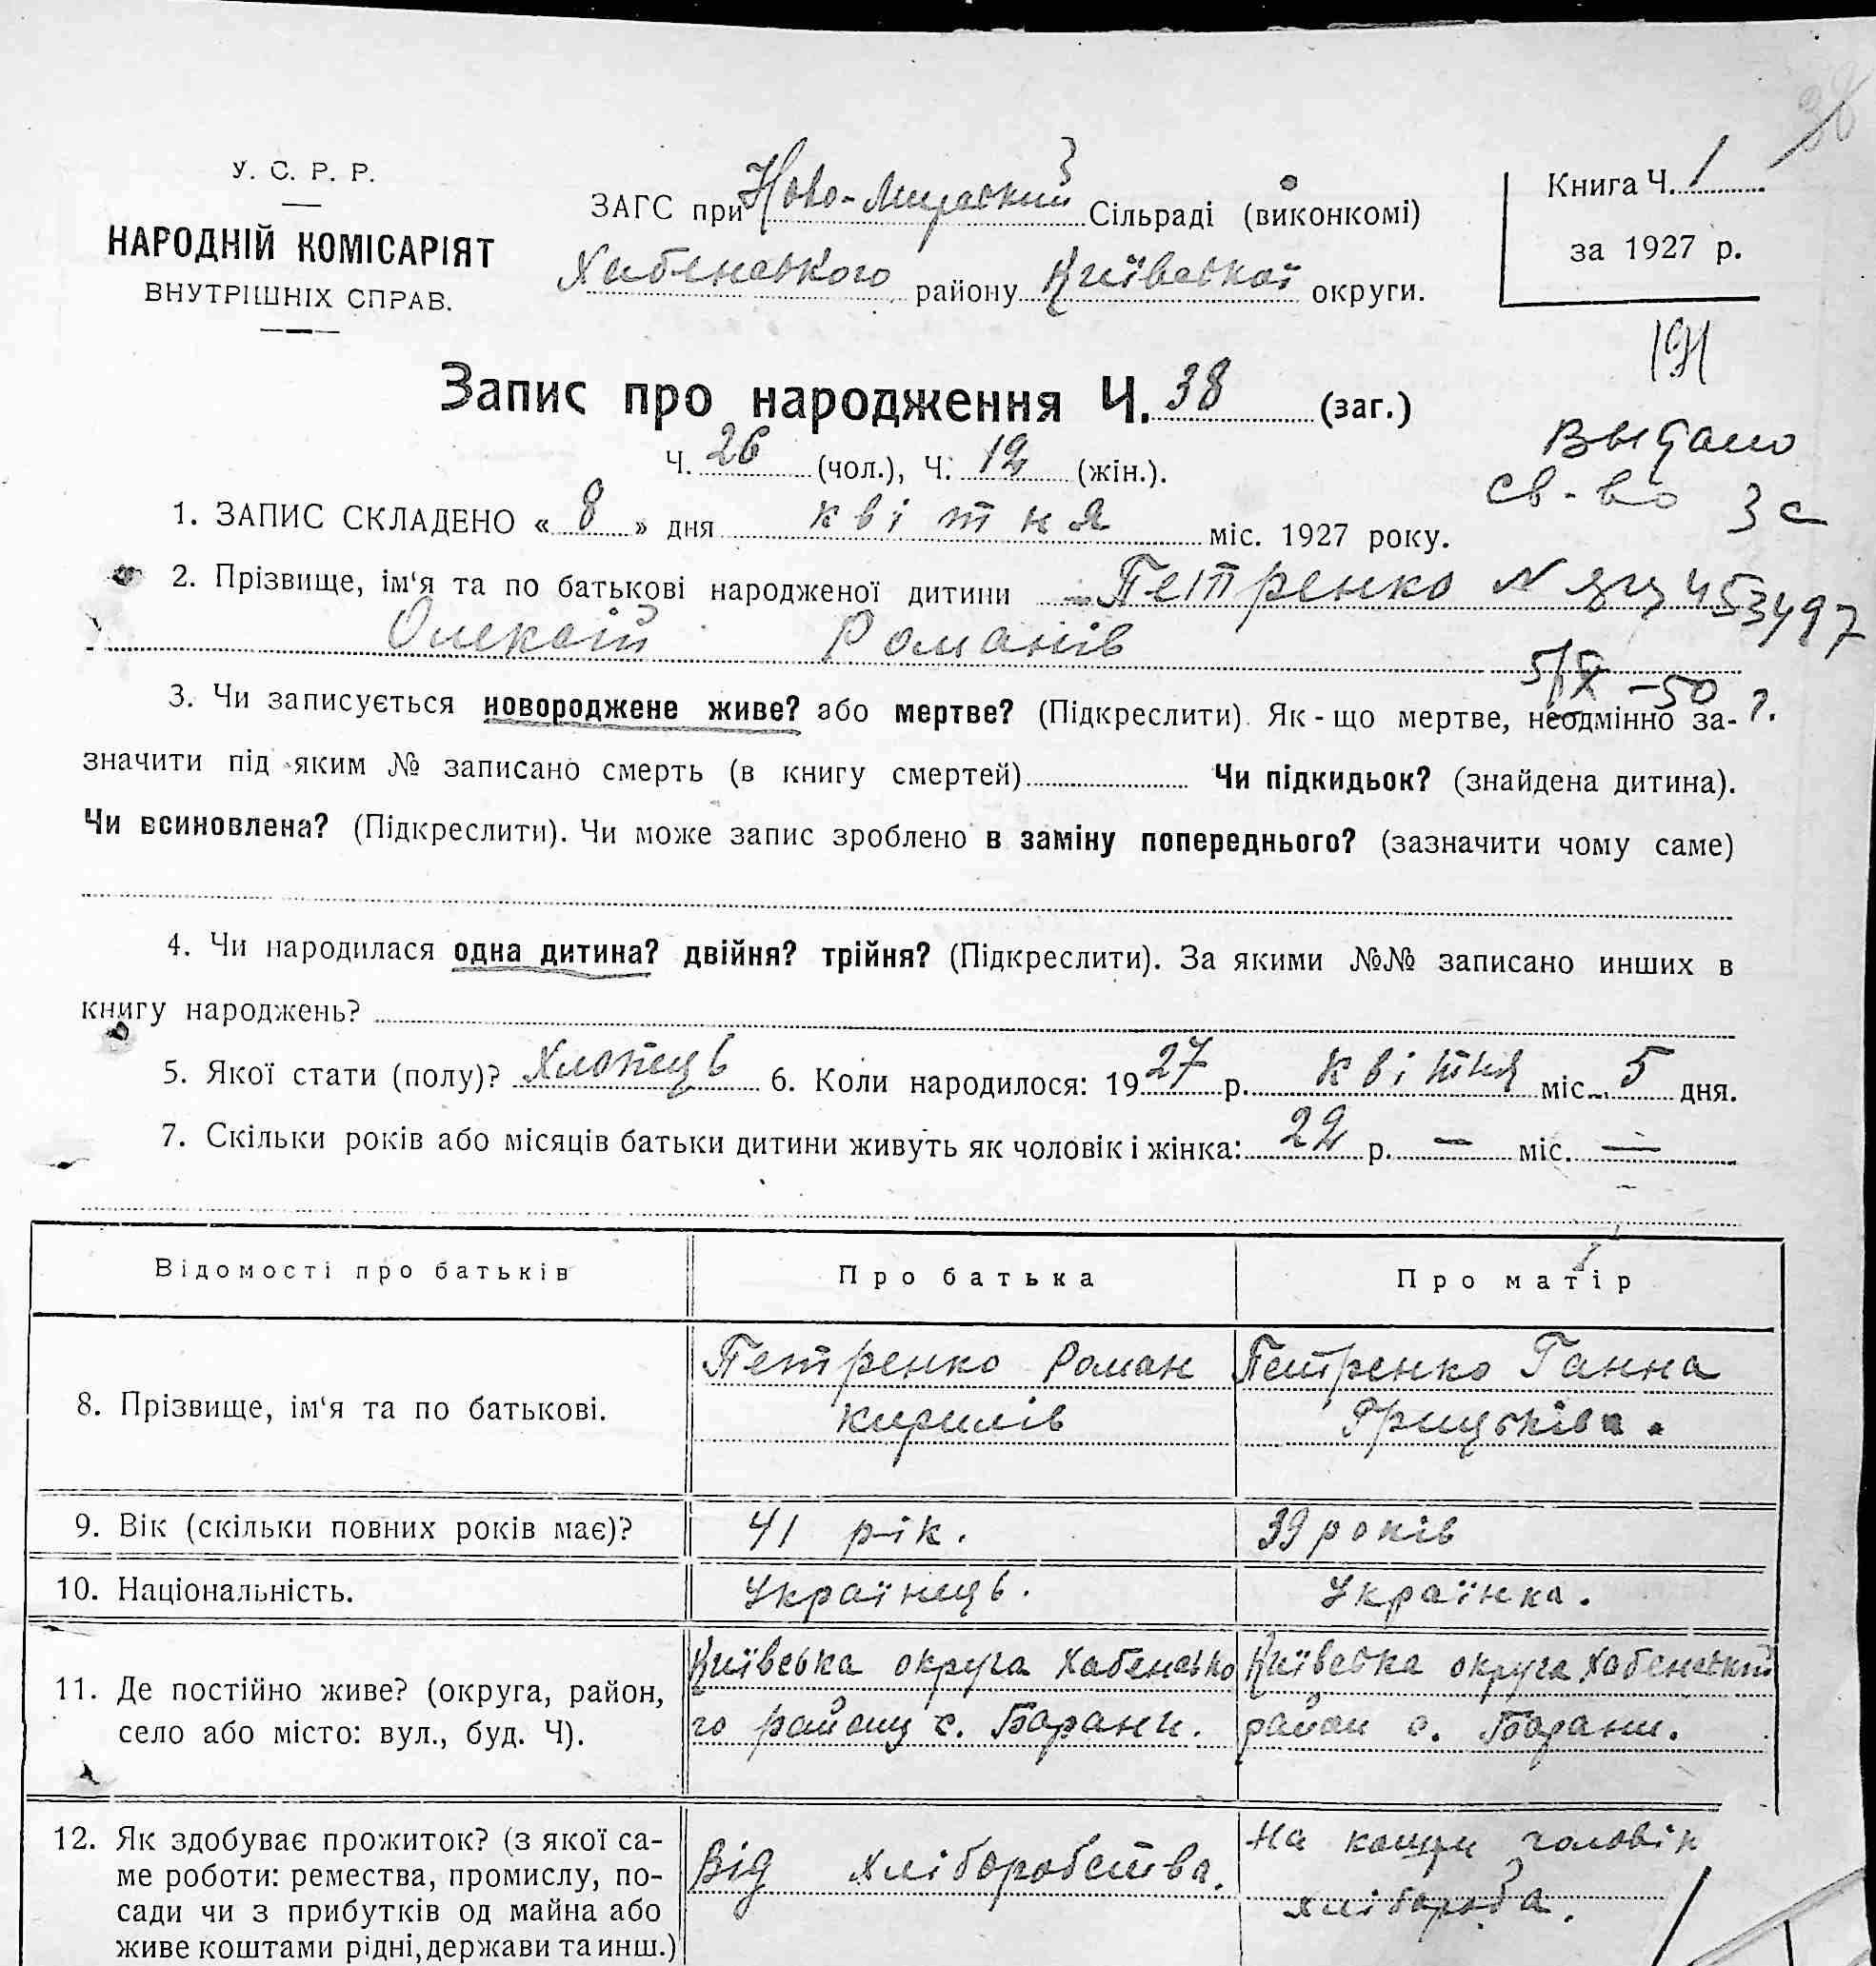 38
У. С. Р. Р.
НАРОДНІЙ КОМІСАРІЯТ
ВНУТРІШНІХ СПРАВ.
ЗАГС при Ново-Мирський Сільраді (виконкомі)
Хабенського району Київської округи.
Книга Ч. 1
за 1927 р.
191
Запис про народження Ч. 38 (заг.)
Ч. 26 (чол.), Ч. 12 (жін.).
Выдано
св-во ЗС
1. ЗАПИС СКЛАДЕНО « 8 » дня квітня міс. 1927 року.
2. Прізвище, ім‘я та по батькові народженої дитини Петренко
N 453497
Олексій Романів
5/X -50 г.
3. Чи записується новороджене живе? або мертве? (Підкреслити). Як-що мертве, неодмінно за-
значити під яким № записано смерть (в книгу смертей) Чи підкидьок? (знайдена дитина).
Чи всиновлена? (Підкреслити). Чи може запис зроблено в заміну попереднього? (зазначити чому саме)
4. Чи народилася одна дитина? двійня? трійня? (Підкреслити). За якими №№ записано инших в
книгу народжень?
5. Якої стати (полу)? Хлопець 6. Коли народилося: 1927 р. квітня міс. 5 дня.
7. Скільки років або місяців батьки дитини живуть як чоловік і жінка: 22 р. — міс. —
Відомості про батьків Про батька Про матір
8. Прізвище, ім‘я та по батькові.
Петренко Роман
Кирилів
Петренко Ганна
Грицьківа.
9. Вік (скільки повних років має)? 41 рік. 39 років
10. Національність. Українець. Українка.
11. Де постійно живе? (округа, район,
село або місто: вул., буд. Ч).
Київська округа Хабенсько
го району с. Барани.
Київська округа Хабенський
район с. Барани.
12. Як здобуває прожиток? (з якої са-
ме роботи: ремества, промислу, по-
сади чи з прибутків од майна або
живе коштами рідні, держави та инш.)
Від хліборобства.
На кошти чоловік
хлібороба.